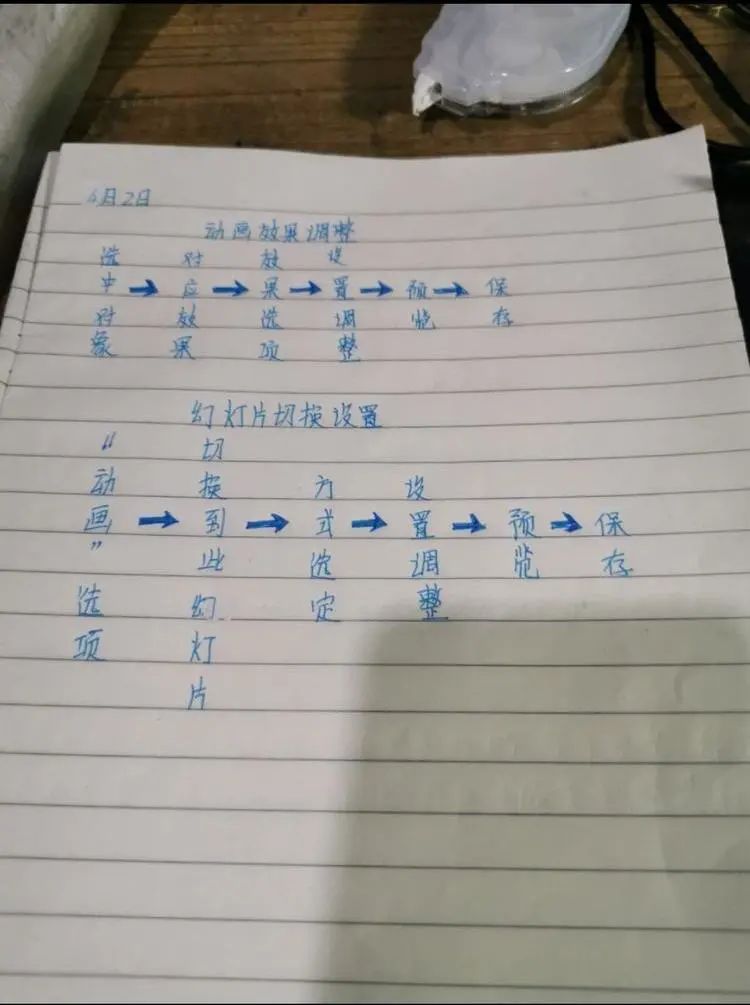 4月2日
动画效果调整
选中对象→对应效果→效果选项→设置调整→预览→保存
幻灯片切换设置
“动画”选项→切换到此幻灯片→方式选定→设置调整→预览→保存